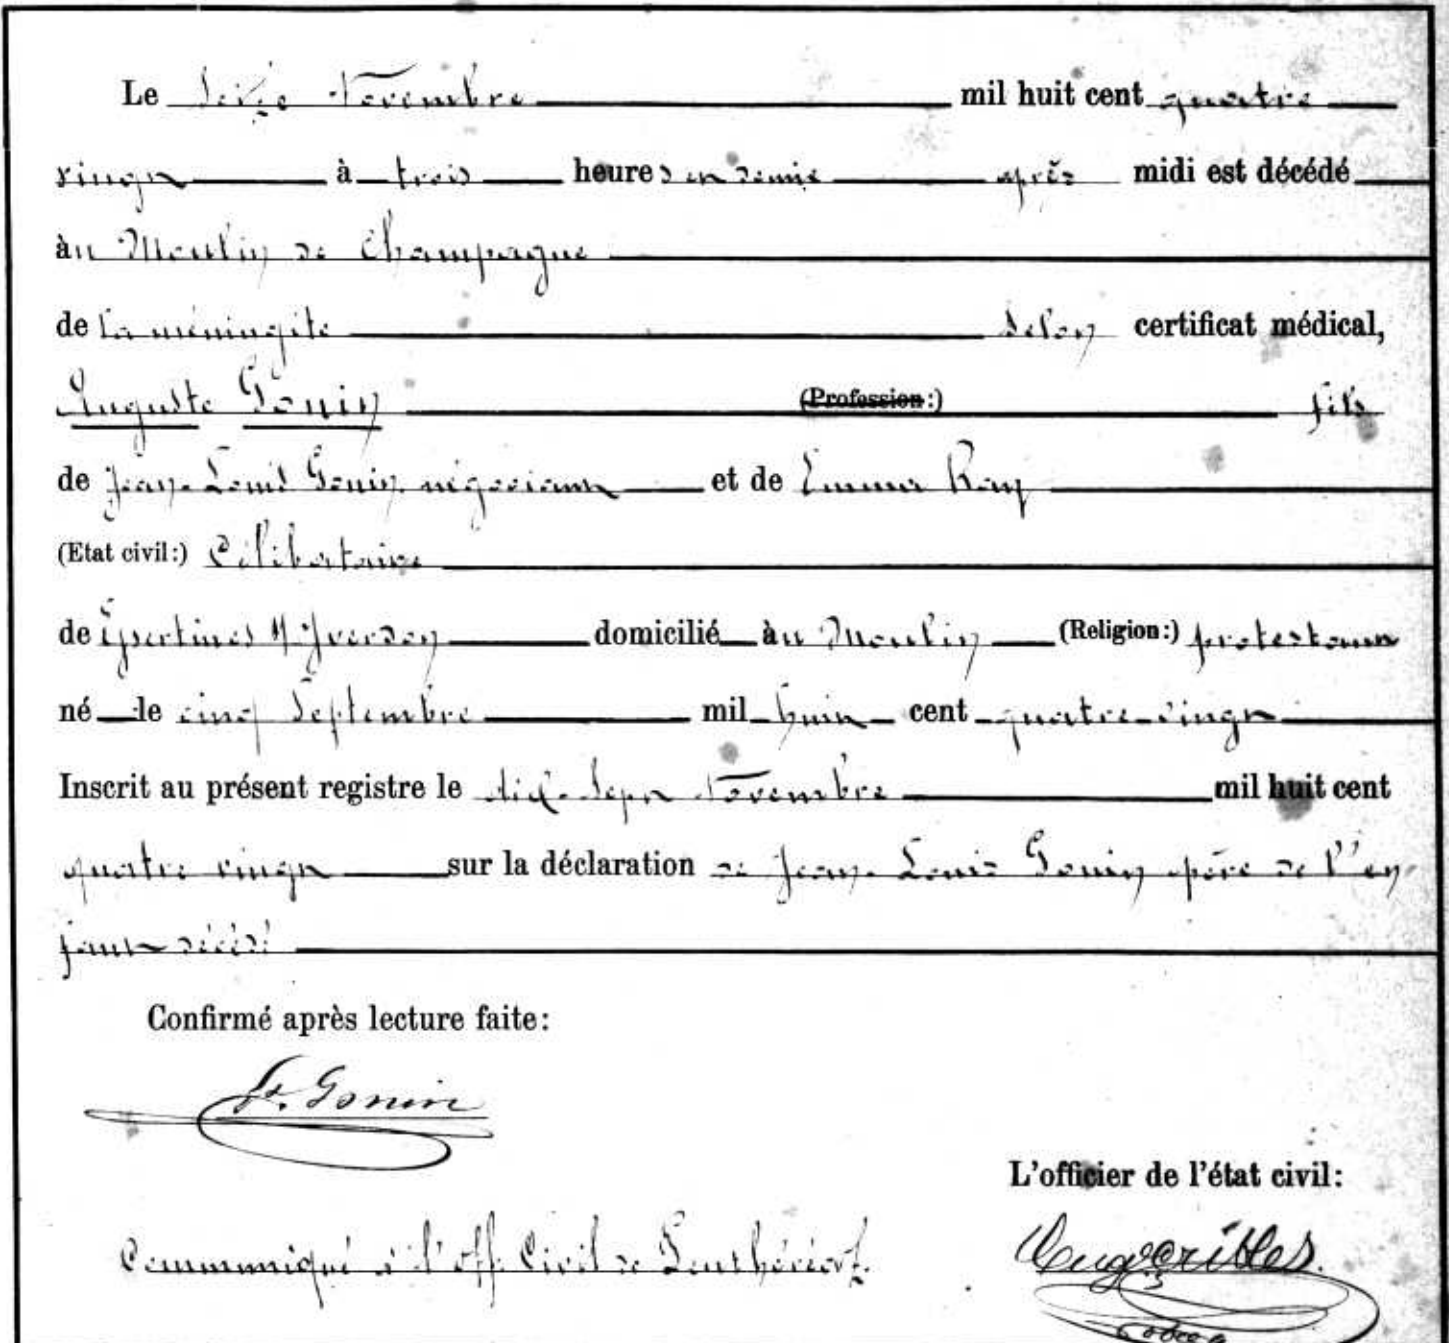 Le seize Novembre mil huit cent quatre
vingt à trois heures et demie après midi est décédé
au Moulin de Champagne
de la méningite selon certificat médical,
Auguste Gonin (Profession:) fils
de Jean-Louis Gonin, négociant et de Emma Ray
(Etat civil:) Célibataire
de Essertines s/ Yverdon domicilié au Moulin (Religion:) protestant
né le cinq Septembre mil huit cent quatre-vingt
Inscrit au présent registre le dix-sept Novembre mil huit cent
quatre vingt sur la déclaration de Jean-Louis Gonin père de l'en
fant décédé
Confirmé après lecture faite:
Gonin
L'officier de l'état civil:
Communiqué à l'off. Civil de